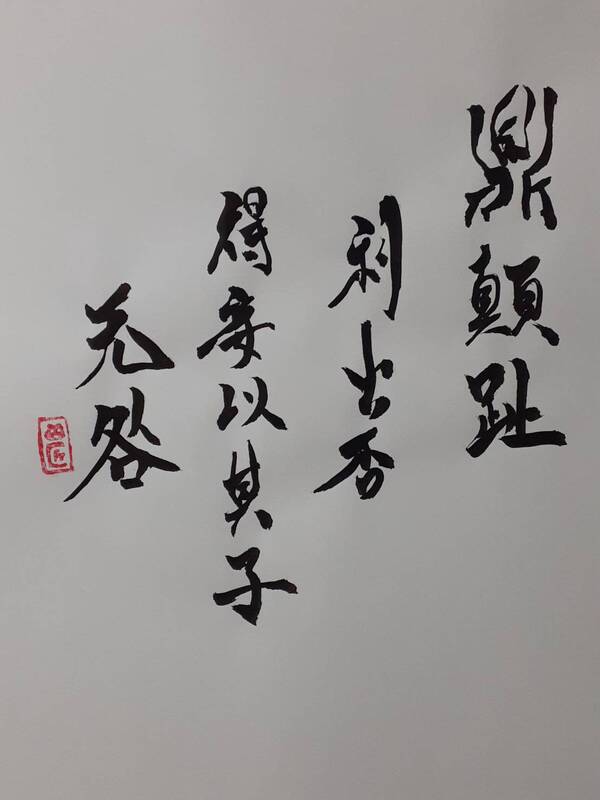 鼎顛趾
利出否
得妾以其子
无咎